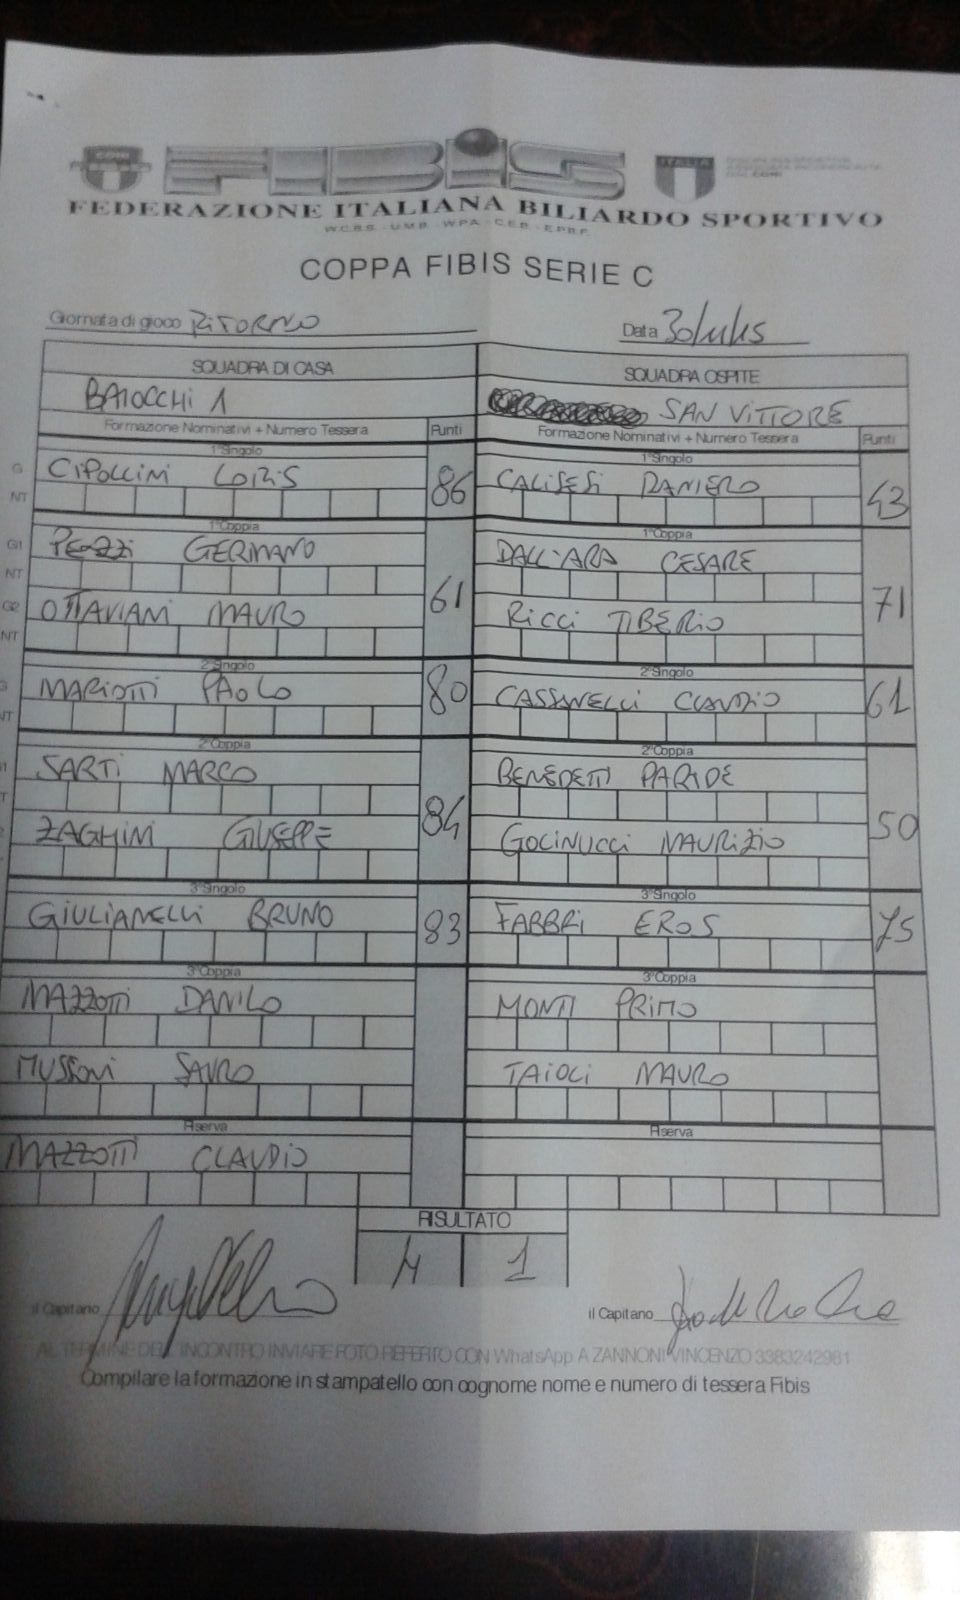 FIBiS
ITALIA
FEDERAZIONE ITALIANA BILIARDO SPORTIVO
W.C.B.S. - U.M.B. - W.P.A. - C.E.B. - E.P.B.F.
COPPA FIBIS SERIE C
Giornata di gioco RITORNO Data
SQUADRA DI CASA SQUADRA OSPITE
BAIOCCHI 1 SAN VITTORE
Formazione Nominativi + Numero Tessera Punti Formazione Nominativi + Numero Tessera Punti
1°Singolo 1°Singolo
G CIPOLLINI LORIS 86 CALISESI RANIERO 43
NT
1°Coppia 1°Coppia
G1 PEZZI GERMANO DALL'ARA CESARE
NT 61 71
G2 OTTAVIANI MAURO RICCI TIBERIO
NT
2°Singolo 2°Singolo
G MARIOTTI PAOLO 80 CASSANELLI CLAUDIO 61
NT
2°Coppia 2°Coppia
SARTI MARCO BENEDETTI PARIDE
84 50
ZAGHINI GIUSEPPE GOCINUCCI MAURIZIO
3°Singolo 3°Singolo
GIULIANELLI BRUNO 83 FABBRI EROS 75
3°Coppia 3°Coppia
MAZZOTTI DANILO MONTI PRIMO
MUSSONI SAURO TAIOLI MAURO
Riserva Riserva
MAZZOTTI CLAUDIO
RISULTATO
4 1
il Capitano il Capitano
AL TERMINE DELL'INCONTRO INVIARE FOTO REFERTO CON WhatsApp A ZANNONI VINCENZO 3383242981
Compilare la formazione in stampatello con cognome nome e numero di tessera Fibis